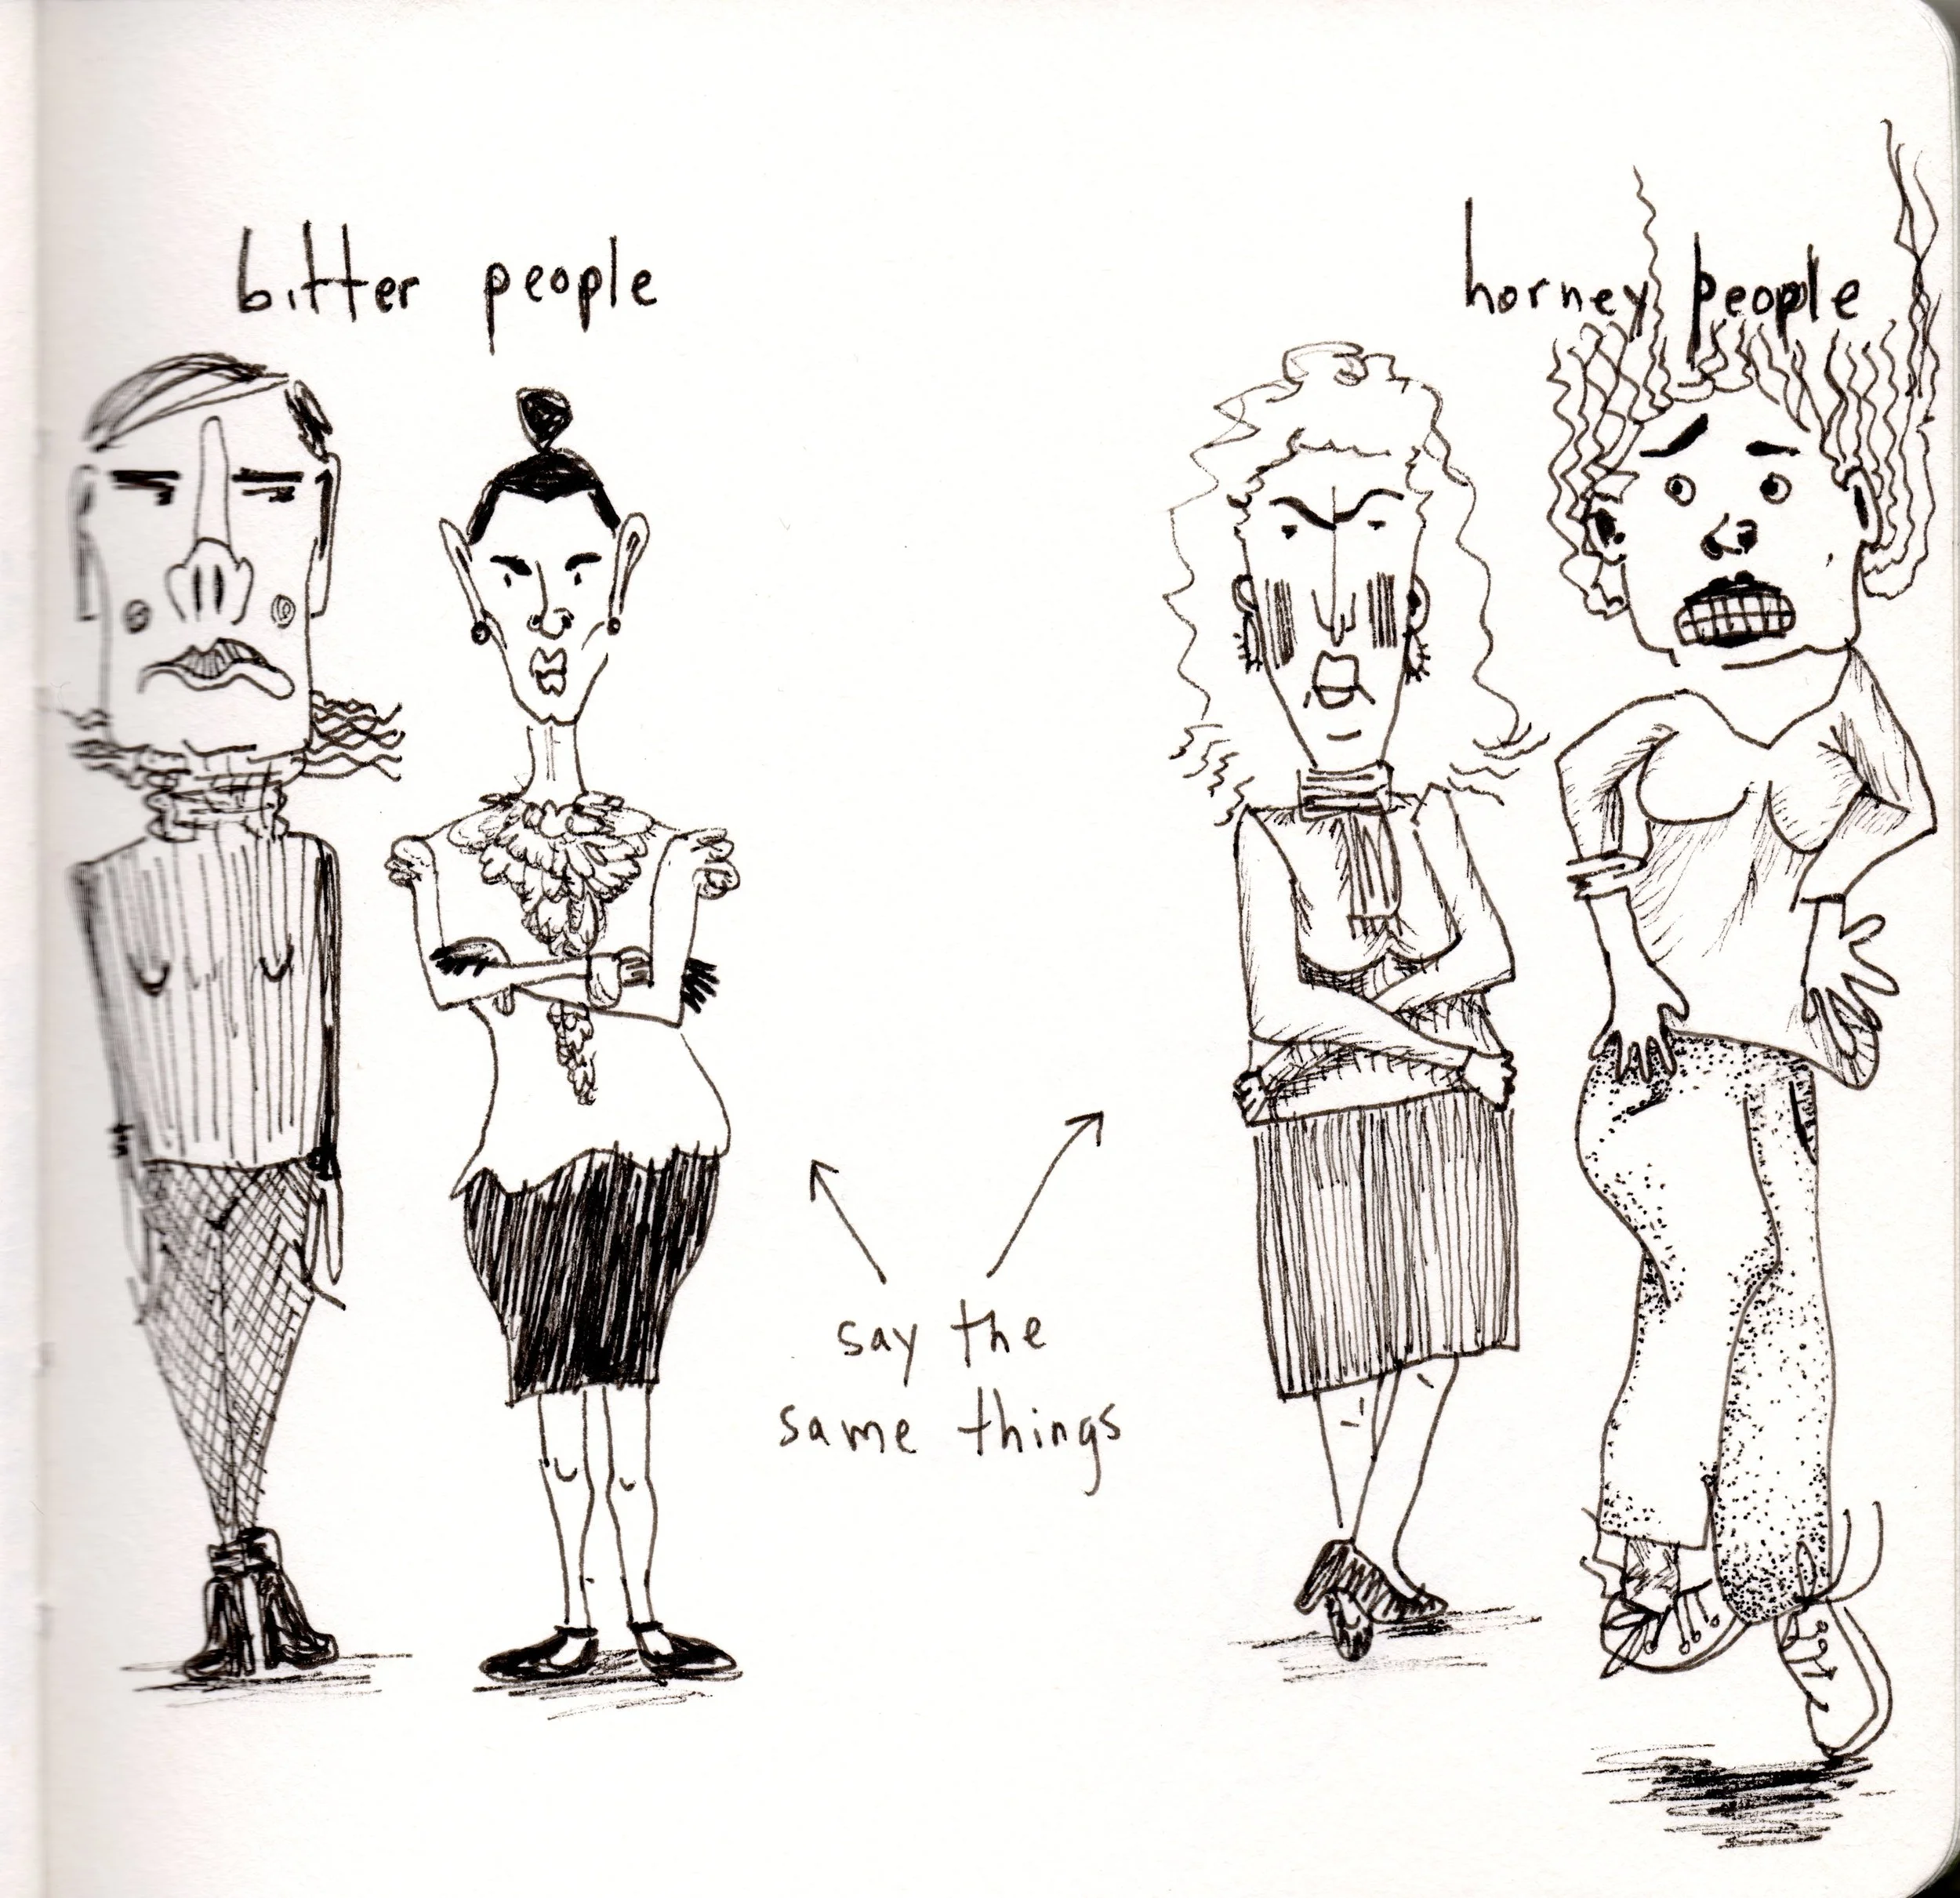 bitter people
horney people
say the
same things